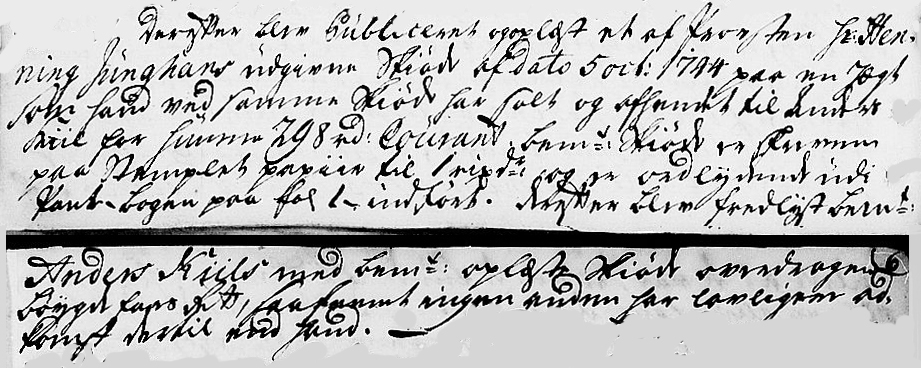 Derefter blev Publiceret opoplæst et af Provsten Hr: Hen-
ning Junghans udgivne Skiøde af dato 5 oct: 1744 paa en Jægt
som hand ved samme Skiøde har solt og afhendet til Anders
Kiil for Summa 298 rd: Courant, bemte: Skiøde er skreven
paa Stemplet papiir til 1 rixdr: og er ordlydende udi
Pant-bogen paa fol 1 indført. Derefter blev fredlyst bemte:
Anders Kiils med bemte: oplæste Skiøde overdragene
bøygde farr ret, saafremt ingen anden har lovligere ad-
komst dertil end hand.